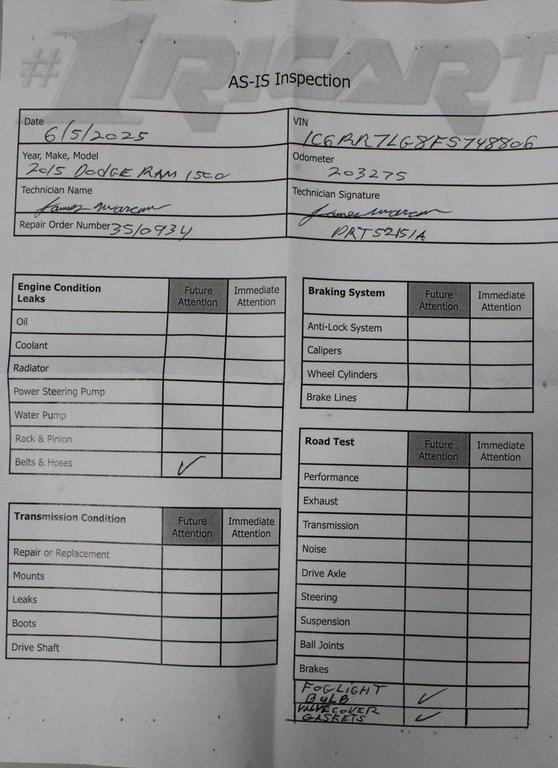 #1 RICART
AS-IS Inspection
Date
6/5/2025
VIN
1C6RR7LG8FS748806
Year, Make, Model
2015 DODGE RAM 1500
Odometer
203275
Technician Name
Technician Signature
Repair Order Number 3510934
PRT52151A
Engine Condition Leaks
Future Attention
Immediate Attention
Oil
Coolant
Radiator
Power Steering Pump
Water Pump
Rack & Pinion
Belts & Hoses ✓
Braking System
Future Attention
Immediate Attention
Anti-Lock System
Calipers
Wheel Cylinders
Brake Lines
Transmission Condition
Future Attention
Immediate Attention
Repair or Replacement
Mounts
Leaks
Boots
Drive Shaft
Road Test
Future Attention
Immediate Attention
Performance
Exhaust
Transmission
Noise
Drive Axle
Steering
Suspension
Ball Joints
Brakes
FOGLIGHT
BULB ✓
VALVE COVER
GASKETS ✓